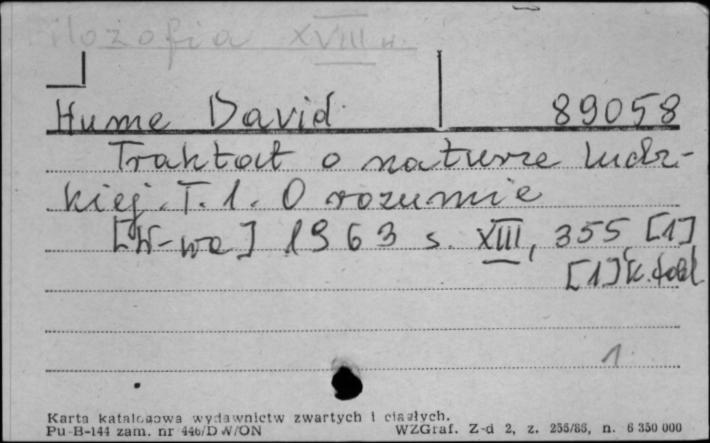 Filozofia XVIII w.
Hume David 89058
Traktat o naturze ludz-
kiej. T. 1. O rozumie
[W-wa] 1963 s. XIII, 355, [1]
[1] k. fot.
1
Karta katalogowa wydawnictw zwartych i ciągłych.
Pu-B-144 zam. nr 446/DW/ON WZGraf. Z-d 2, z. 256/86, n. 6 350 000